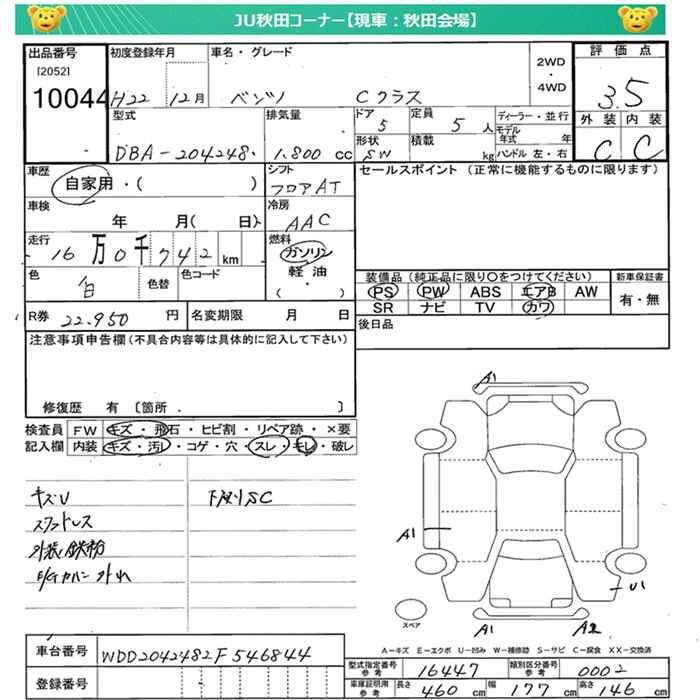 JU秋田コーナー【現車：秋田会場】
出品番号
[2052]
10044
初度登録年月
H22 12月
車名・グレード
ベンツ Cクラス
2WD
・
4WD
評価点
3.5
外装 内装
C C
型式
DBA-204248
排気量
1.800 cc
ドア
5
定員
5 人
形状
SW
積載
kg
ディーラー・並行
モデル年式 年
ハンドル 左・右
車歴
自家用・( )
シフト
フロアAT
車検
年 月( 日)
冷房
AAC
走行
16万0千742km
燃料
ガソリン
軽油
( ・ )
色
白
色替
色コード
R券 22,950 円
名変期限 月 日
セールスポイント (正常に機能するものに限ります)
装備品 (純正品に限り○をつけてください)
PS PW ABS エアB AW
SR ナビ TV カワ
新車保証書
有・無
後日品
注意事項申告欄 (不具合内容等は具体的に記入して下さい)
修復歴 有 〔箇所 . 〕
検査員 FW キズ・飛石・ヒビ割・リペア跡・×要
記入欄 内装 キズ・汚し・コゲ・穴・スレ・キレ・破レ
キズU
スタットレス
外装鉄粉
E/Gカバー外れ
下廻りSC
A1
A1
U1
A1
A2
スペア
A-キズ E-エクボ U-凹み W-補修跡 S-サビ C-腐食 XX-交換済
車台番号 WDD2042482F546844
登録番号
型式指定番号 参考 16447
類別区分番号 参考 0002
車庫証明用 参考 長さ 460 cm 幅 177 cm 高さ 146 cm